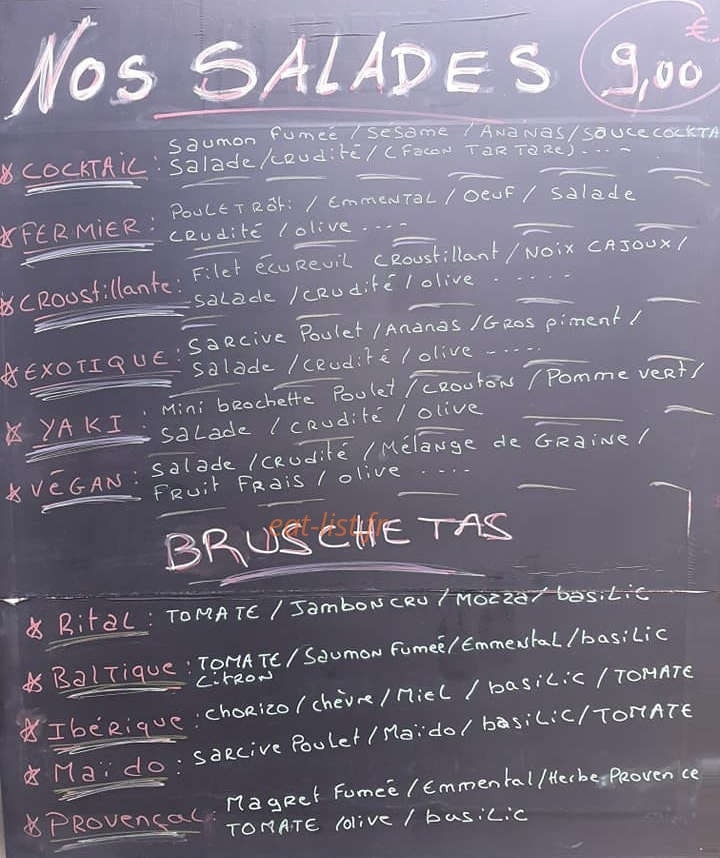 NOS SALADES 9,00 €
* COCKTAIL : Saumon fumeé / Sésame / ANANAS / SAUCE COCKTA
Salade / crudité / (FACON TARTARE) ....
* FERMIER : POULET Rôti / EMMENTAL / OEUF / Salade
CRUdité / olive ....
* CROUSTILLANTE : Filet écureuil CROUSTILLANT / NOIX CAJOUX /
Salade / CRUdité / olive ......
* EXOTIQUE : SARCIVE POULET / ANANAS / GROS piment /
Salade / CRUdité / olive .....
* YAKI : Mini brochette Poulet / CROUTON / POMME VERT /
SALADE / CRUdité / OLIVE
* VÉGAN : Salade / CRUdité / Mélange de GRAINE /
FRUIT FRAIS / olive ....
eat-list.fr
BRUSCHETAS
* RITAL : TOMATE / JAMBON CRU / MOZZA / basilic
* BALTIQUE : TOMATE / SAUMON FUMEÉ / EMMENTAL / basilic
CITRON
* IBÉRIQUE : CHORIZO / chèvre / MIEL / basilic / TOMATE
* Maïdo : SARCIVE POULET / Maïdo / basilic / TOMATE
* PROVENÇAL : MAGRET FUMEÉ / EMMENTAL / Herbe PROVENCE
TOMATE / olive / basilic